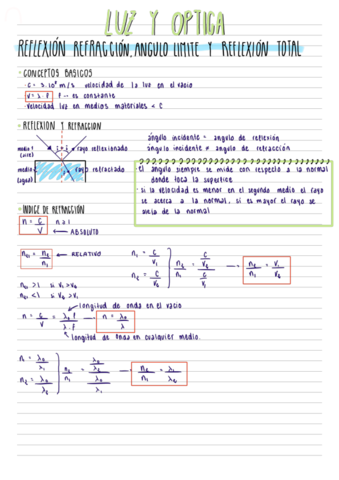 LUZ Y OPTICA
REFLEXIÓN REFRACCIÓN, ANGULO LIMITE Y REFLEXIÓN TOTAL
CONCEPTOS BASICOS
· C = 3·10⁸ m/s velocidad de la luz en el vacio
V = λ·f f → es constante
· Velocidad luz en medios materiales < C
REFLEXION Y REFRACCION
ángulo incidente = angulo de reflexión
ángulo incidente ≠ angulo de refracción
medio 1 (aire)
i r rayo reflexionado
medio 2 (agua)
rayo refractado
· El angulo siempre se mide con respecto a la normal
donde toca la superficie
· si la velocidad es menor en el segundo medio el rayo
se acerca a la normal, si es mayor el rayo se
aleja de la normal
INDICE DE REFRACCIÓN
n = C/V n ≥ 1
← ABSOLUTO
n₂₁ = n₂/n₁ ← RELATIVO
n₁ = C/V₁
n₂ = C/V₂
n₂/n₁ = (C/V₂)/(C/V₁) → n₂/n₁ = V₁/V₂
n₂₁ > 1 si V₁ > V₂
n₂₁ < 1 si V₂ > V₁
longitud de onda en el vacio
n = C/V = λ₀·f/λ·f → n = λ₀/λ
longitud de onda en cualquier medio.
n₁ = λ₀/λ₁
n₂ = λ₀/λ₂
n₂/n₁ = (λ₀/λ₂)/(λ₀/λ₁) → n₂/n₁ = λ₁/λ₂